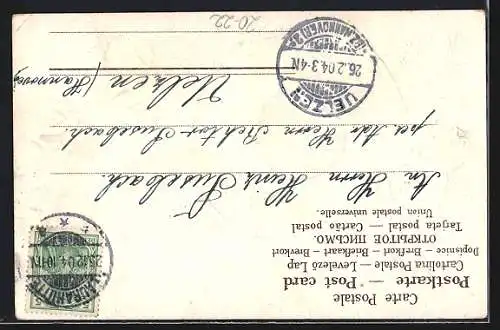 Carte Postale
Postkarte — Post card
Cartolina Postale — Levelező Lap
Dopisnice — Brefkort — Briefkaart — Brevkort
ОТКРЫТОЕ ПИСЬМО.
Tarjeta postal — Cartão postal
Union postale universelle.
An Herrn Heinr. Susebach.
per Adr. Herrn Richter Susebach.
Uelzen (Hannover)
UELZEN
26.2.04.3-4N
(BZ. HANNOVER)
20-22